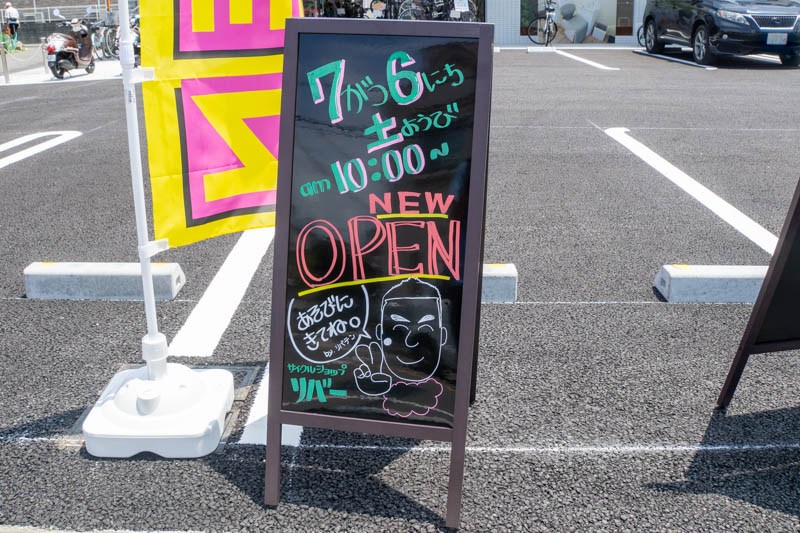 7がつ6にち
土ようび
am10:00~
NEW
OPEN
あそびに
きてね。
by.リバテン
サイクルショップ
リバー